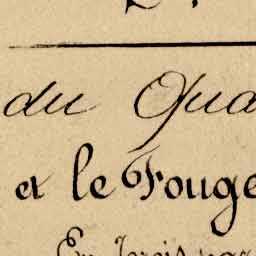 du Qua
et le Fouge
En